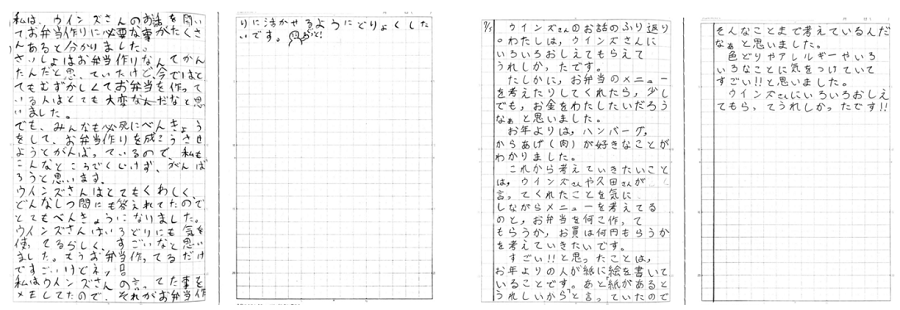 私は、ウインズさんのお話を聞い
てお弁当作りに必要な事がたくさ
んあると分かりました。
さいしょはお弁当作りなんてかん
たんだと思っていたけど今ではと
てもむずかしくてお弁当を作って
いる人はとても大変なんだなと思
いました。
でも、みんなも必死にべんきょう
をして、お弁当作りを成こうさせ
ようとがんばっているので、私も
こんなところでくじけず、がんば
ろうと思います。
ウインズさんはとてもくわしく、
どんなしつ問にも答えれてたので
とてもべんきょうになりました。
ウインズさんはいろどりにも気を
使ってるらしく、すごいなと思い
ました。てうお弁当作ってるだけ
ですごいけどネッ
私はウインズさんの言ってた事を
メモしてたので、それがお弁当作
りに活かせるようにどりょくした
いです。
ウインズさんのお話のふり返り
。わたしは、ウインズさんに
いろいろおしえてもらえて
うれしかったです。
たしかに、お弁当のメニュー
を考えたりしてくれたら、少し
でも、お金をわたしたいだろう
なぁと思いました。
お年よりは、ハンバーグ、
からあげ(肉)が好きなことが
わかりました。
これから考えていきたいこと
は、ウインズさんや久田さんが
言ってくれたことを気に
しながらメニューを考えてる
のと、お弁当を何こ作って
もらうか、お買は何円もらうか
を考えていきたいです。
すごい!!と思ったことは、
お年よりの人が紙に絵を書いて
いることです。あと「紙があると
うれしいから」と言っていたので
そんなことまで考えているんだ
なぁと思いました。
色どりやアレルギーやいろ
いろなことに気をつけていて
すごい!!と思いました。
ウインズさんにいろいろおしえ
てもらってうれしかったです!!